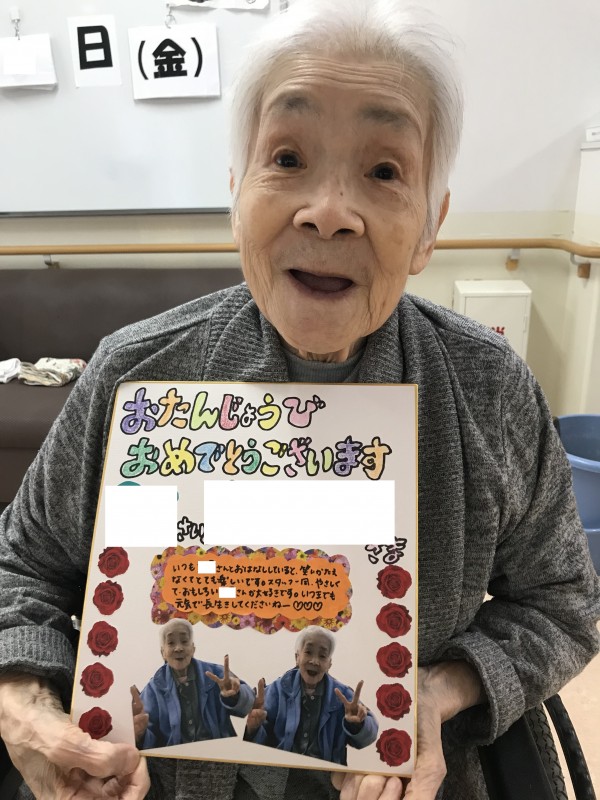 日
(金)
おたんじょうび
おめでとうございます
さい
さま
いつも さんとおはなししていると、笑いがたえ
なくてとても楽しいです。スタッフ一同、やさしく
て、おもしろい さんが大好きです。いつまでも
元気で長生きしてくださいねー♡♡♡